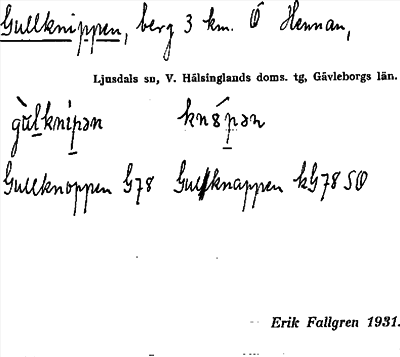 Gullknippen, berg 3 km. Ö Hennan,
Ljusdals sn, V. Hälsinglands doms. tg, Gävleborgs län.
gùlknipən knȣ́pən
Gullknoppen G78 Gullknappen kG78SO
Erik Fallgren 1931.